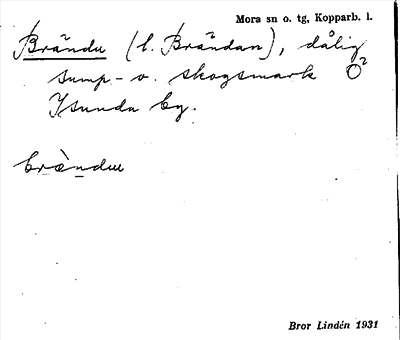 Mora sn o. tg, Kopparb. l.
Brändu (l. Brändan), dålig
sump- o. skogsmark O²
Isunda by.
brä̀ndu
Bror Lindén 1931